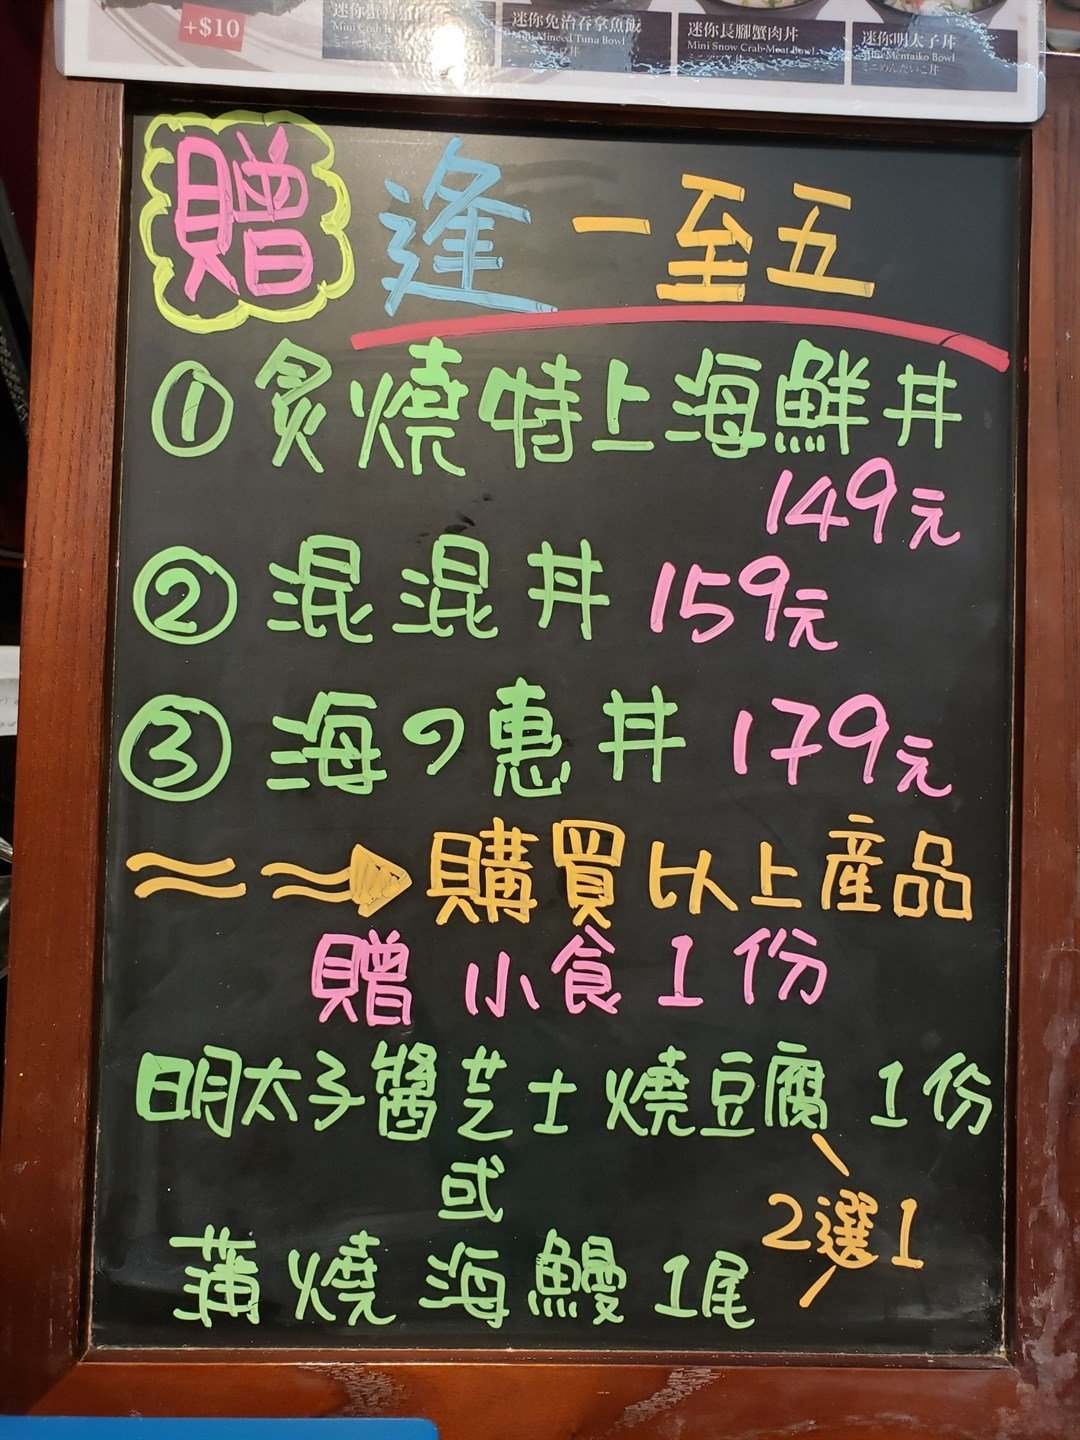 +$10
迷你免治吞拿魚飯
Mini Minced Tuna Bowl
迷你長腳蟹肉丼
Mini Snow Crab-Meat Bowl
迷你明太子丼
Mini Mentaiko Bowl
ミニめんたいこ丼
贈 逢 一至五
① 炙燒特上海鮮丼
149元
② 混混丼 159元
③ 海の惠丼 179元
購買以上產品
贈 小食1份
明太子醬芝士燒豆腐 1份
或
2選1
蒲燒海鰻1尾